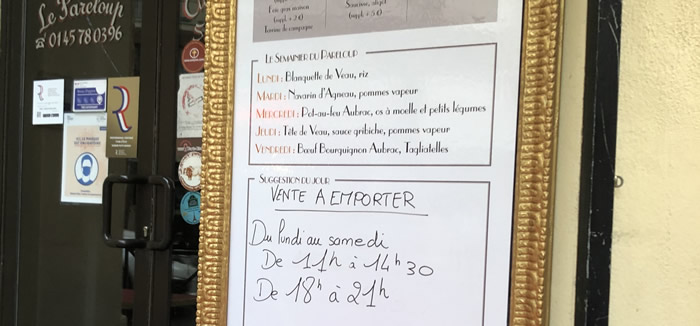 Le Pareloup
☎ 01 45 78 03 96
Foie gras maison
(suppl. + 2 €)
Terrine de campagne
Saucisse, aligot
(suppl. + 5 €)
LE SEMAINIER DU PARELOUP
LUNDI : Blanquette de Veau, riz
MARDI : Navarin d'Agneau, pommes vapeur
MERCREDI : Pot-au-feu Aubrac, os à moelle et petits légumes
JEUDI : Tête de Veau, sauce gribiche, pommes vapeur
VENDREDI : Bœuf Bourguignon Aubrac, Tagliatelles
SUGGESTION DU JOUR
VENTE A EMPORTER
Du lundi au samedi
De 11h à 14h30
De 18h à 21h